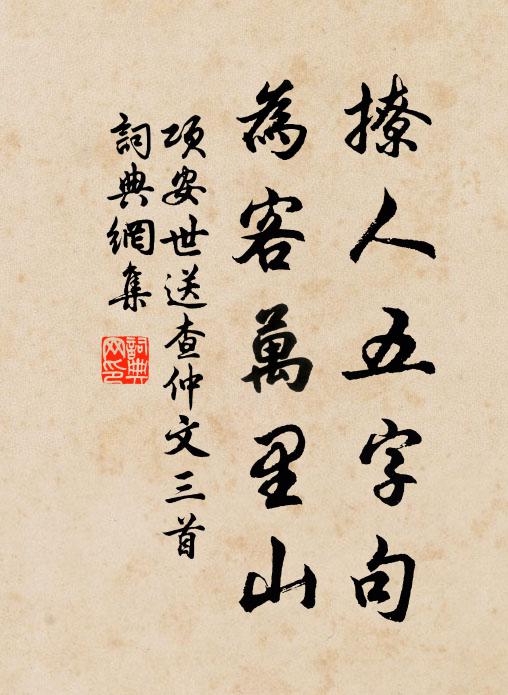 撩人五字句
為客萬里山
項安世送查仲文三首
詞典網集
詞典網印